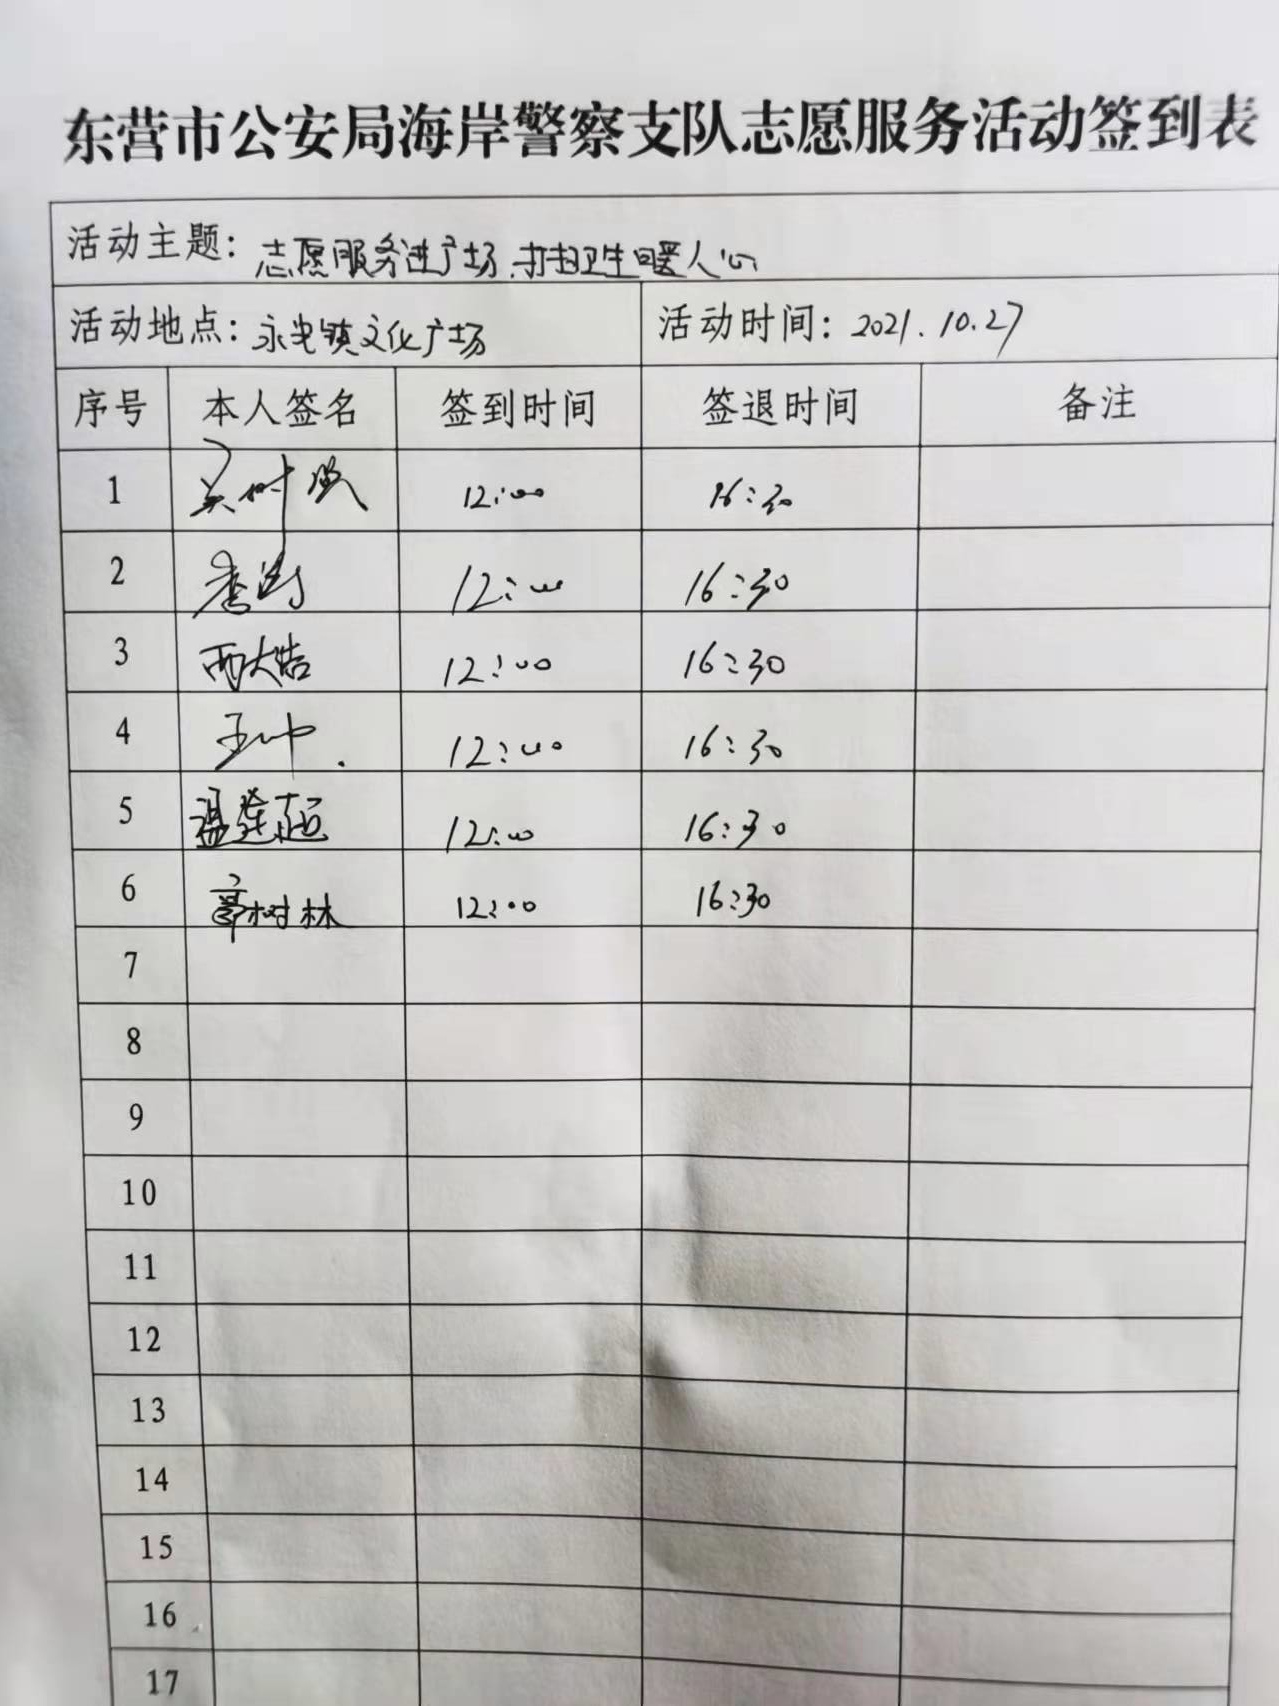 东营市公安局海岸警察支队志愿服务活动签到表
活动主题：志愿服务进广场.打扫卫生暖人心
活动地点：永安镇文化广场 活动时间：2021.10.27
序号 本人签名 签到时间 签退时间 备注
1 12:00 16:30
2 12:00 16:30
3 12:00 16:30
4 12:00 16:30
5 温莲超 12:00 16:30
6 郭树林 12:00 16:30
7
8
9
10
11
12
13
14
15
16
17